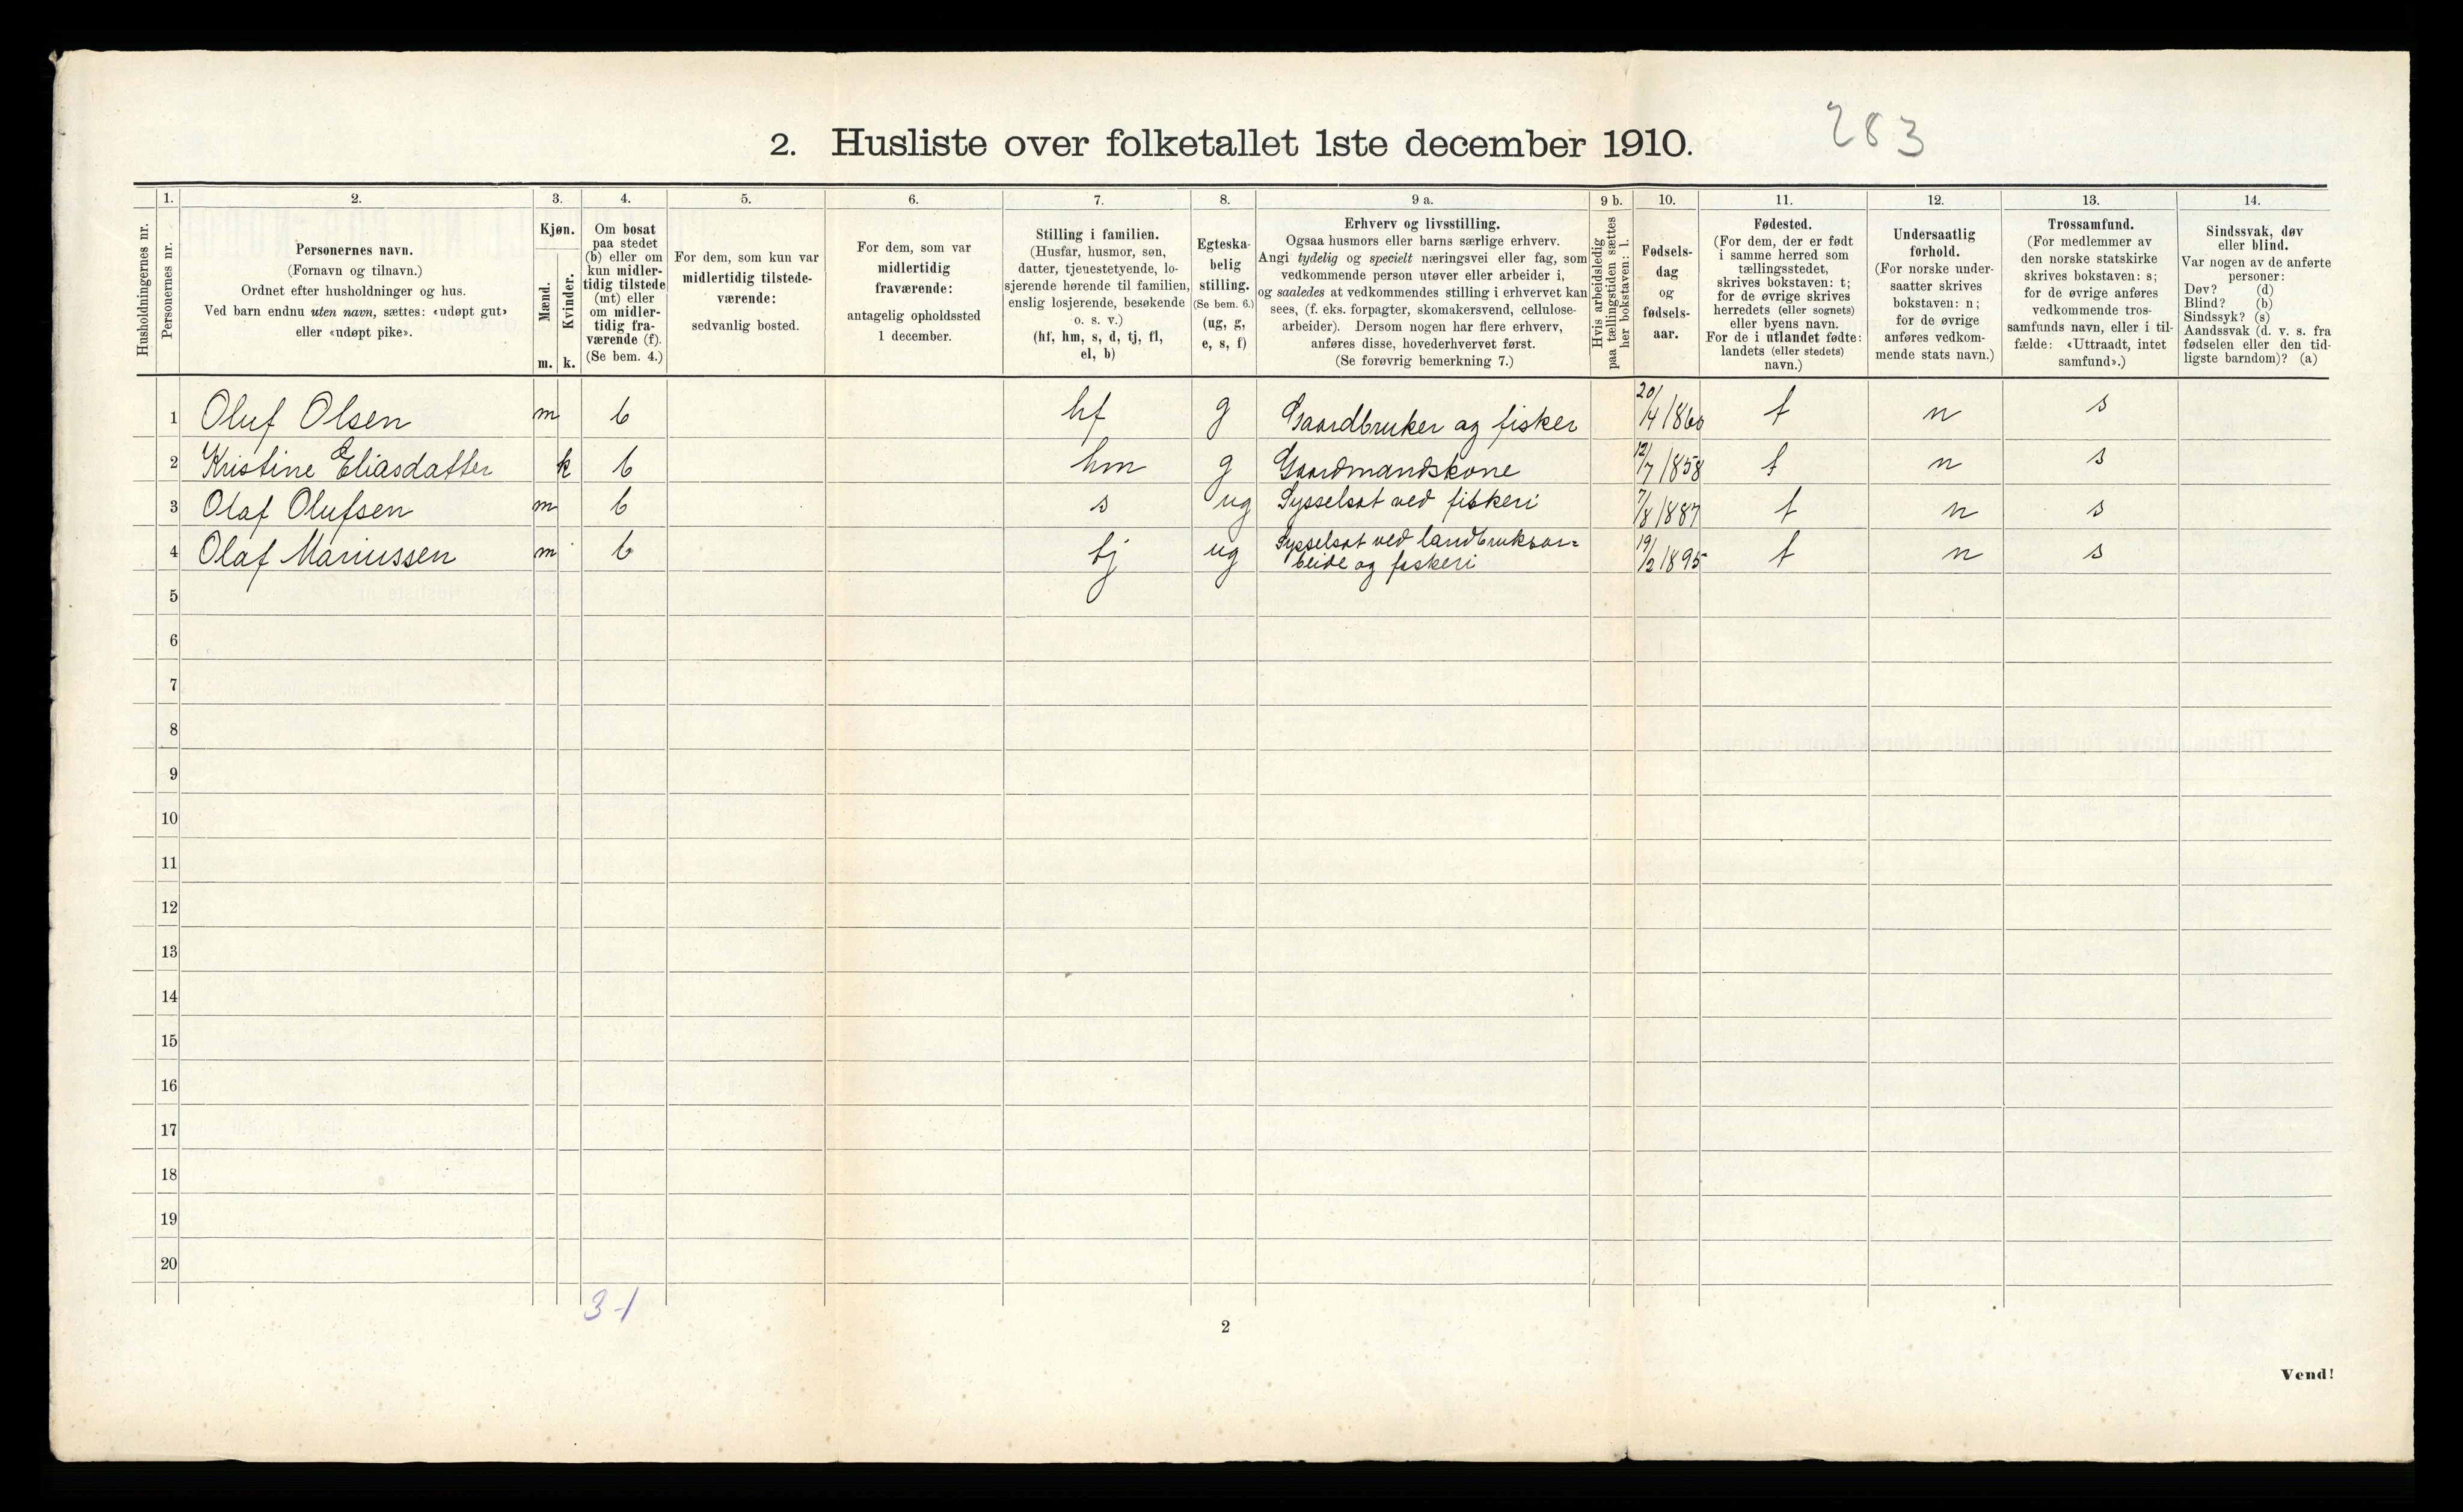 283
2. Husliste over folketallet 1ste december 1910.
Husholdningernes nr.
1.
Personernes nr.
2.
Personernes navn.
(Fornavn og tilnavn.)
Ordnet efter husholdninger og hus.
Ved barn endnu uten navn, sættes: «udøpt gut»
eller «udøpt pike».
3.
Kjøn.
Mænd.
Kvinder.
m. k.
4.
Om bosat
paa stedet
(b) eller om
kun midler-
tidig tilstede
(mt) eller
om midler-
tidig fra-
værende (f).
(Se bem. 4.)
5.
For dem, som kun var
midlertidig tilstede-
værende:
sedvanlig bosted.
6.
For dem, som var
midlertidig
fraværende:
antagelig opholdssted
1 december.
7.
Stilling i familien.
(Husfar, husmor, søn,
datter, tjenestetyende, lo-
sjerende hørende til familien,
enslig losjerende, besøkende
o. s. v.)
(hf, hm, s, d, tj, fl,
el, b)
8.
Egteska-
belig
stilling.
(Se bem. 6.)
(ug, g,
e, s, f)
9 a.
Erhverv og livsstilling.
Ogsaa husmors eller barns særlige erhverv.
Angi tydelig og specielt næringsvei eller fag, som
vedkommende person utøver eller arbeider i,
og saaledes at vedkommendes stilling i erhvervet kan
sees, (f. eks. forpagter, skomakersvend, cellulose-
arbeider). Dersom nogen har flere erhverv,
anføres disse, hovederhvervet først.
(Se forøvrig bemerkning 7.)
9 b.
Hvis arbeidsledig
paa tællingstiden sættes
her bokstaven: l.
10.
Fødsels-
dag
og
fødsels-
aar.
11.
Fødested.
(For dem, der er født
i samme herred som
tællingsstedet,
skrives bokstaven: t;
for de øvrige skrives
herredets (eller sognets)
eller byens navn.
For de i utlandet fødte:
landets (eller stedets)
navn.)
12.
Undersaatlig
forhold.
(For norske under-
saatter skrives
bokstaven: n;
for de øvrige
anføres vedkom-
mende stats navn.)
13.
Trossamfund.
(For medlemmer av
den norske statskirke
skrives bokstaven: s;
for de øvrige anføres
vedkommende tros-
samfunds navn, eller i til-
fælde: «Uttraadt, intet
samfund».)
14.
Sindssvak, døv
eller blind.
Var nogen av de anførte
personer:
Døv? (d)
Blind? (b)
Sindssyk? (s)
Aandssvak (d. v. s. fra
fødselen eller den tid-
ligste barndom)? (a)
1 Oluf Olsen m b hf g Gaardbruker og fisker 20/4 1860 t n s
2 Kristine Eliasdatter k b hm g Gaardmandskone 12/7 1858 t n s
3 Olaf Olufsen m b s ug Sysselsat ved fiskeri 7/8 1887 t n s
4 Olaf Mariussen m b tj ug Sysselsat ved landbruksar=
beide og fiskeri 19/2 1895 t n s
5
6
7
8
9
10
11
12
13
14
15
16
17
18
19
20
3-1
2
Vend!